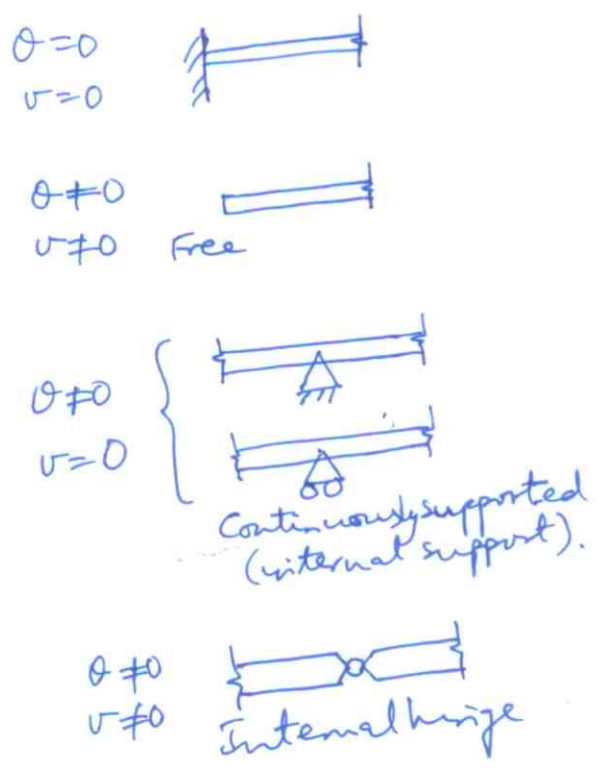 θ = 0
v = 0
θ ≠ 0
v ≠ 0 Free
θ ≠ 0
v = 0
Continuously supported
(internal support).
θ ≠ 0
v ≠ 0
Internal hinge